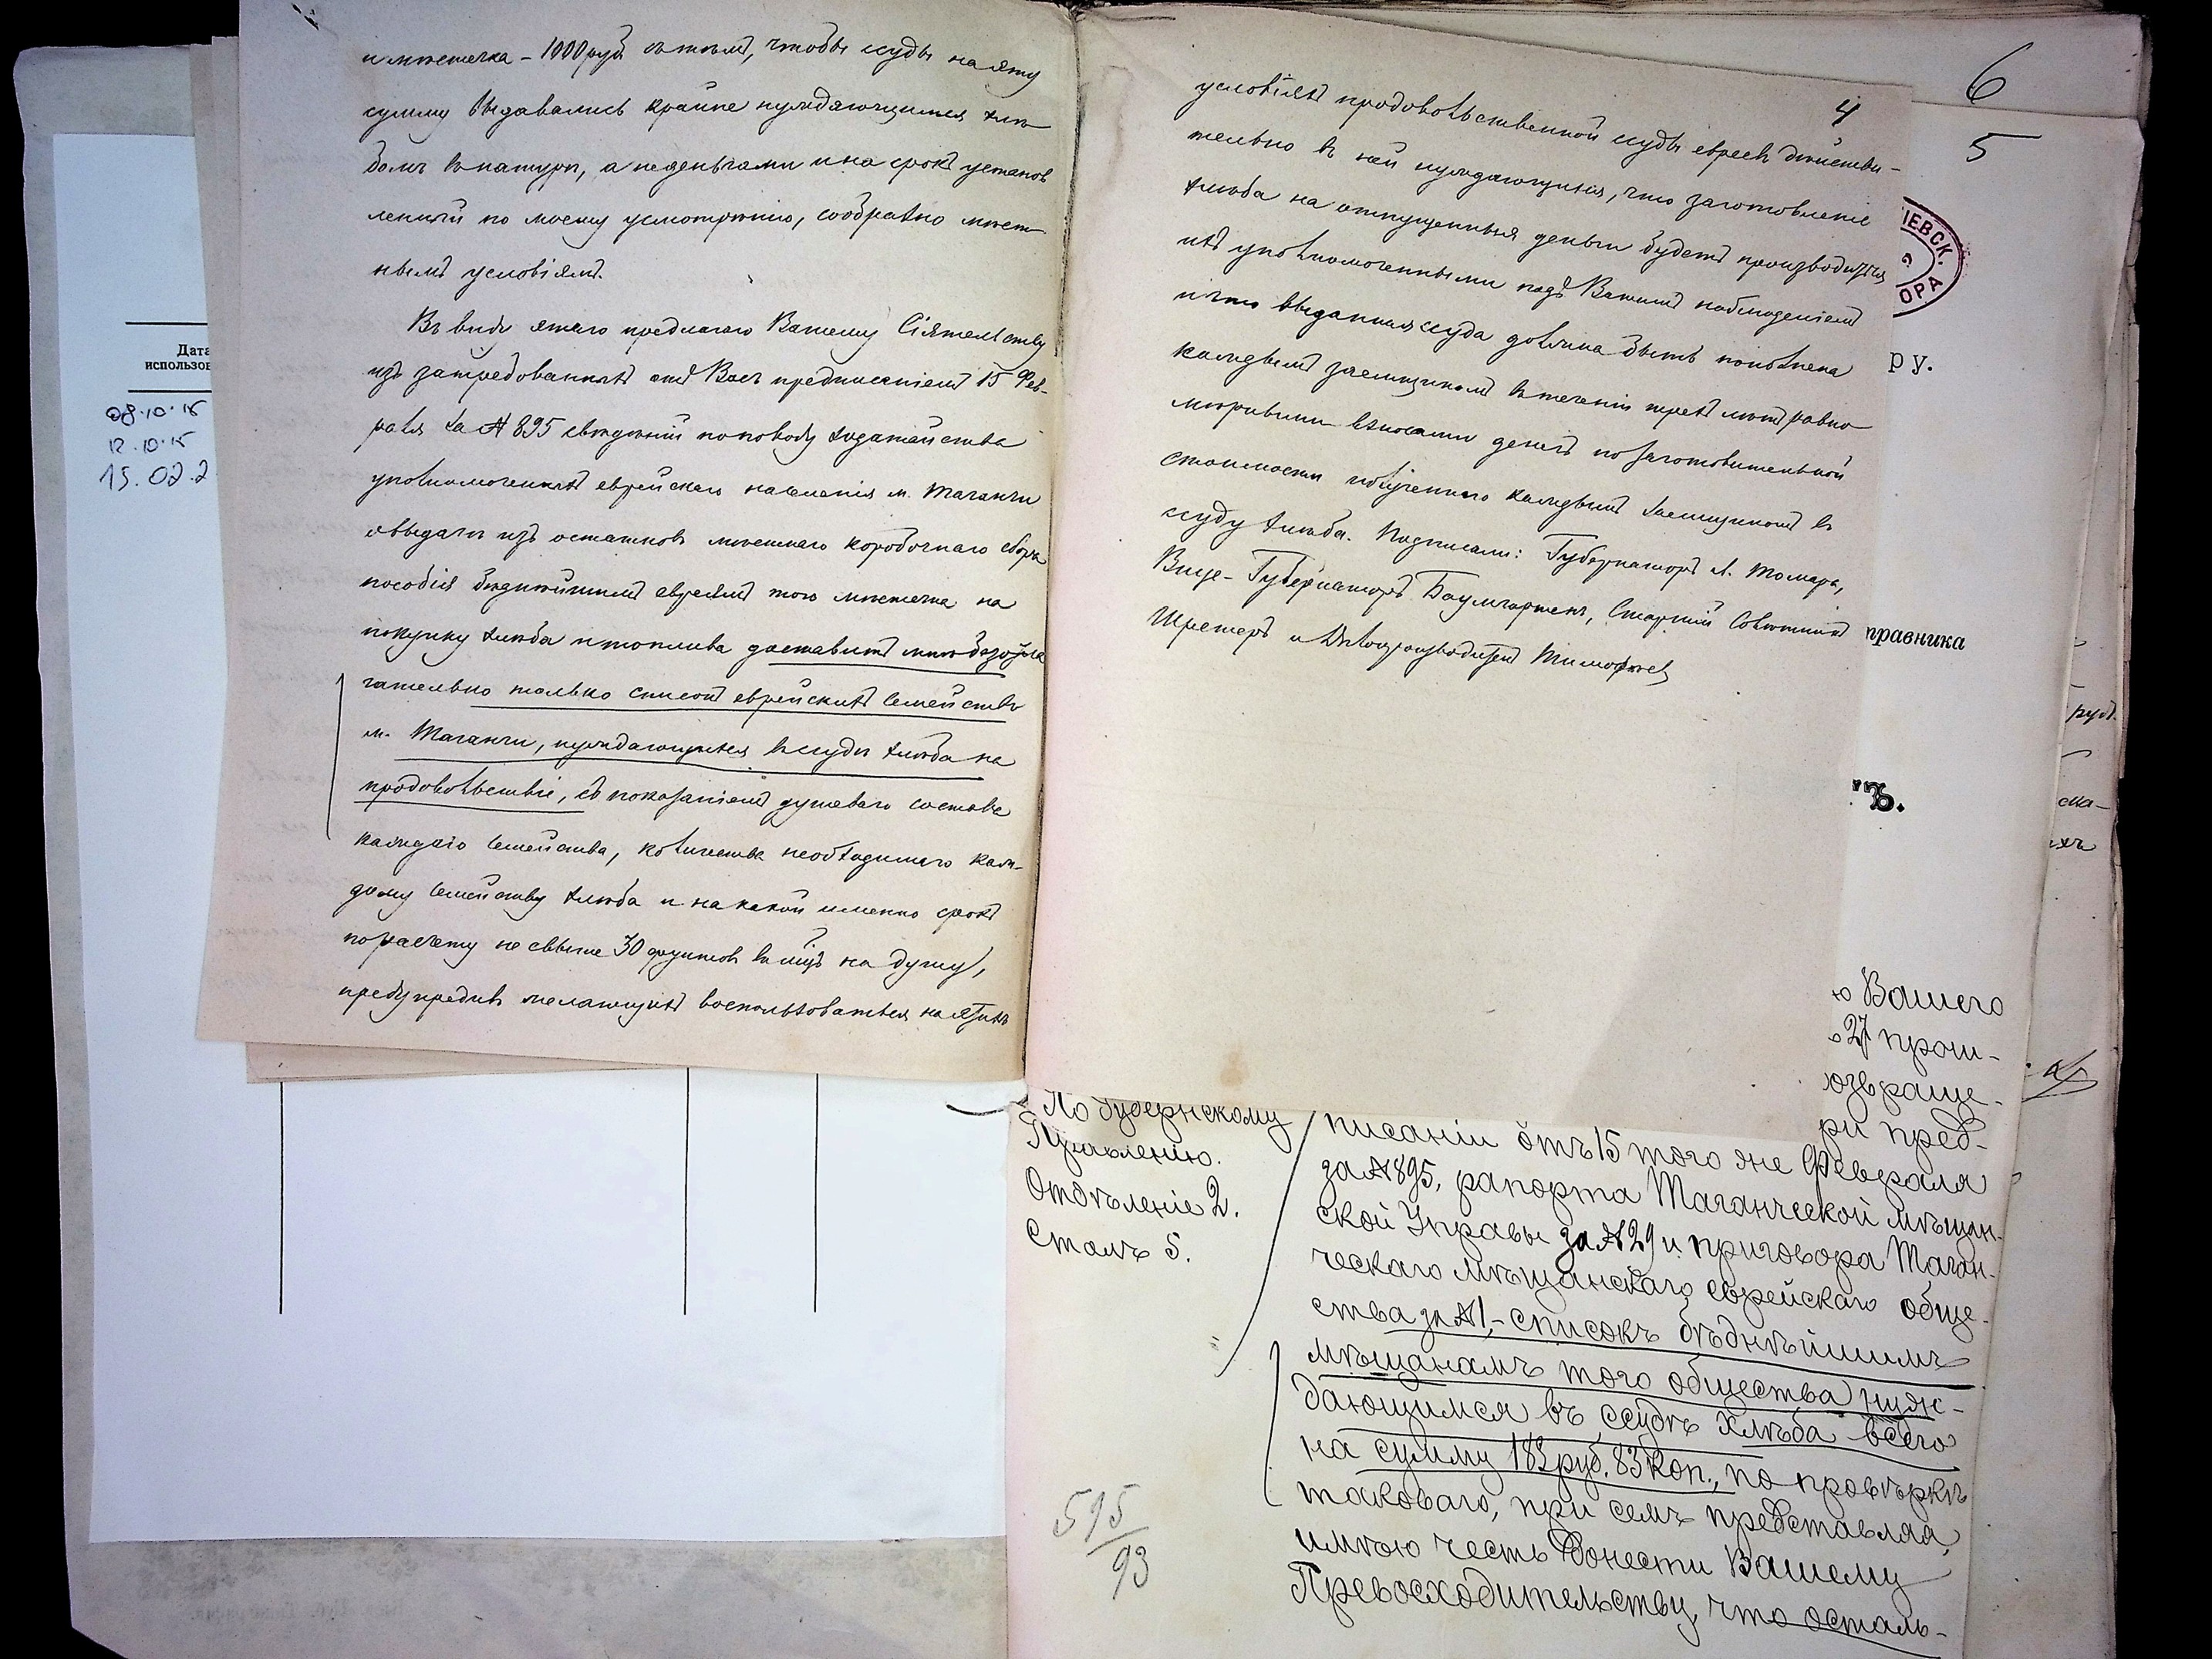 и мѣстечка – 1000 руб. съ тѣмъ, чтобы ссуды на эту
сумму выдавались крайне нуждающимся хлѣ
бомъ въ натурѣ, а не деньгами и на срокъ установ
ленный по моему усмотрѣнію, сообразно мѣст
нымъ условіямъ.
Въ виду этого предлагаю Вашему Сіятельству
изъ затребованныхъ отъ Васъ предписаніемъ 15 Фев-
раля за № 895 свѣдѣній по поводу ходатайства
уполномоченныхъ еврейскаго населенія м. Таганчи
о выдачѣ изъ остатковъ мѣстнаго коробочнаго сбора
пособія бѣднѣйшимъ евреямъ того мѣстечка на
покупку хлѣба и топлива доставить мнѣ безотла
гательно только списокъ еврейскихъ семействъ
м. Таганчи, нуждающихся въ ссудѣ хлѣба на
продовольствіе, съ показаніемъ душеваго состава
каждаго семейства, количества необходимаго каж-
дому семейству хлѣба и на какой именно срокъ
по расчету не свыше 30 фунтовъ въ мѣц. на душу,
предупредивъ желающихъ воспользоваться на этихъ
4
условіяхъ продовольственной ссуды евреевъ дѣйстви-
тельно въ ней нуждающихся, что заготовленіе
хлѣба на отпущенныя деньги будетъ производиться
ихъ уполномоченными подъ Вашимъ наблюденіемъ
и что выданная ссуда должна быть пополнена
каждымъ заемщикомъ въ теченіи трехъ лѣтъ равно
мѣрными взносами денегъ по заготовительной
стоимости полученнаго каждымъ заемщикомъ въ
ссуду хлѣба. Подписали: Губернаторъ Л. Томара,
Вице-Губернаторъ Баумгартенъ, Старшій Совѣтникъ
Шретеръ и Дѣлопроизводитель Тимофѣев
6
5
ІЕВСК. 
ОРА
РУ.
правника
ъ.
ю Вашего
о 27 прош-
озвраще-
ри пред-
По Губернскому
Правленію.
Отдѣленіе 2.
Столъ 5.
писаніи отъ 15 того же Февраля
за № 895, рапорта Таганческой мѣщан-
ской Управы за № 29 и приговора Таган-
ческаго мѣщанскаго еврейскаго обще-
ства за № 1,– списокъ бѣднѣйшимъ
мѣщанамъ того общества нуж-
дающимся въ ссудѣ хлѣба всего
на сумму 182 руб. 83 коп., по провѣркѣ
таковаго, при семъ представляя,
имѣю честь донести Вашему
Превосходительству, что осталь-
595
93
Дата
использов
08.10.15
12.10.15
15.02.2
руб.
ска-
ихъ